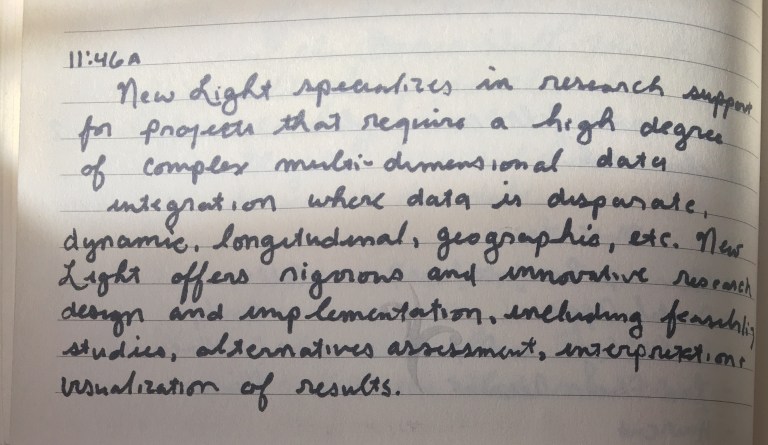 11:46A
New Light specializes in research support
for projects that require a high degree
of complex multi-dimensional data
integration where data is disparate,
dynamic, longitudinal, geographic, etc. New
Light offers rigorous and innovative research
design and implementation, including feasibility
studies, alternatives assessment, interpretation &
visualization of results.